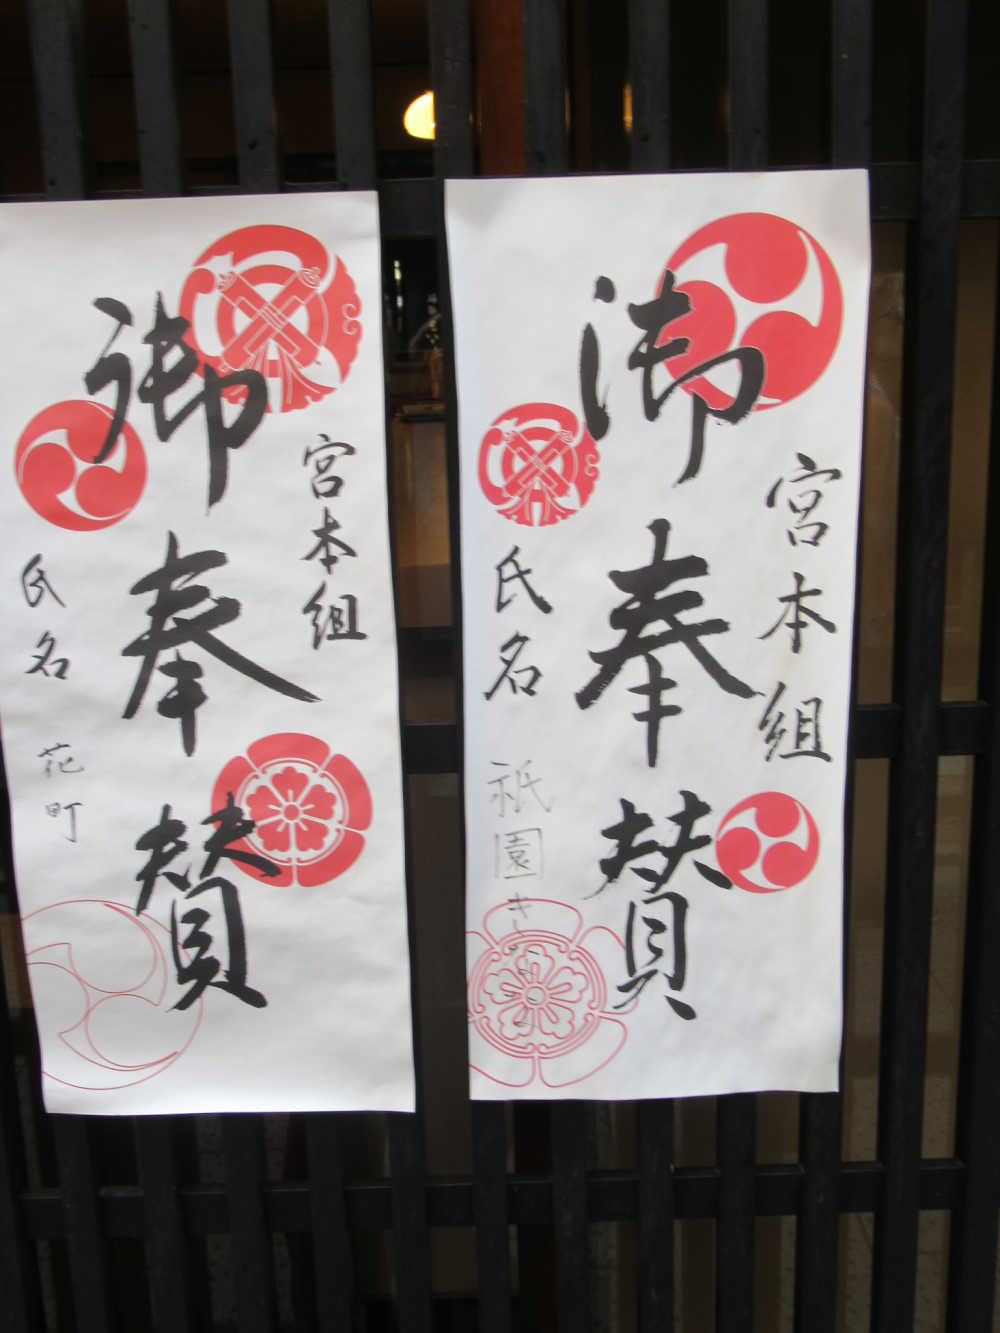 宮本組
御奉賛
氏名 祇園き
宮本組
御奉賛
氏名 花町